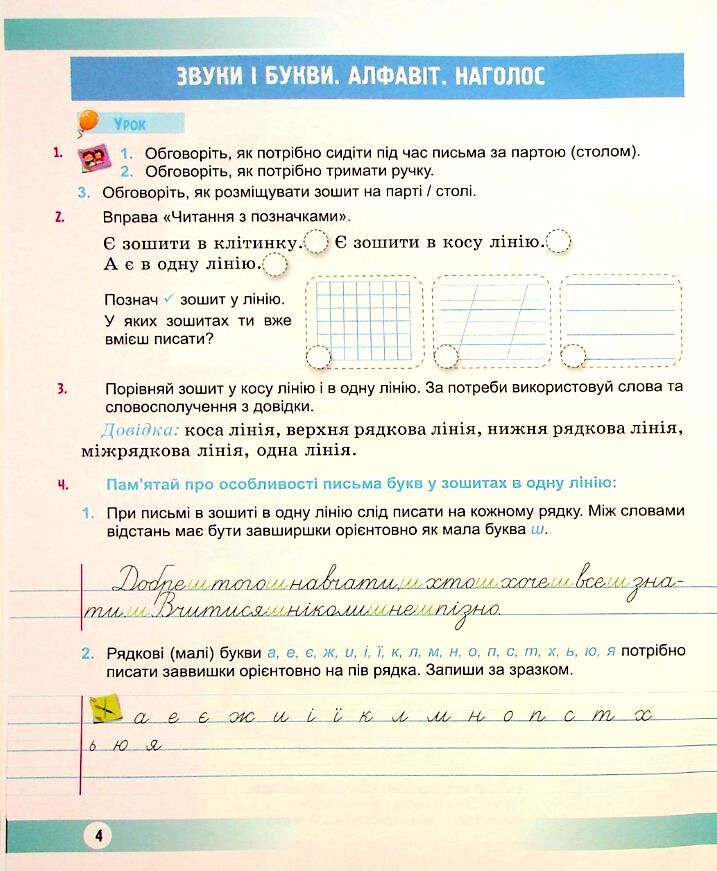 ЗВУКИ І БУКВИ. АЛФАВІТ. НАГОЛОС
УРОК
1. 1. Обговоріть, як потрібно сидіти під час письма за партою (столом).
2. Обговоріть, як потрібно тримати ручку.
3. Обговоріть, як розміщувати зошит на парті / столі.
2. Вправа «Читання з позначками».
Є зошити в клітинку. Є зошити в косу лінію.
А є в одну лінію.
Познач ✓ зошит у лінію.
У яких зошитах ти вже
вмієш писати?
3. Порівняй зошит у косу лінію і в одну лінію. За потреби використовуй слова та
словосполучення з довідки.
Довідка: коса лінія, верхня рядкова лінія, нижня рядкова лінія,
міжрядкова лінія, одна лінія.
4. Пам’ятай про особливості письма букв у зошитах в одну лінію:
1. При письмі в зошиті в одну лінію слід писати на кожному рядку. Між словами
відстань має бути завширшки орієнтовно як мала буква ш.
Добре ш того ш навчати, ш хто ш хоче ш все ш зна-
ти. ш Вчитися ш ніколи ш не ш пізно.
2. Рядкові (малі) букви а, е, є, ж, и, і, ї, к, л, м, н, о, п, с, т, х, ь, ю, я потрібно
писати заввишки орієнтовно на пів рядка. Запиши за зразком.
а е є ж и і ї к л м н о п с т х
ь ю я
4